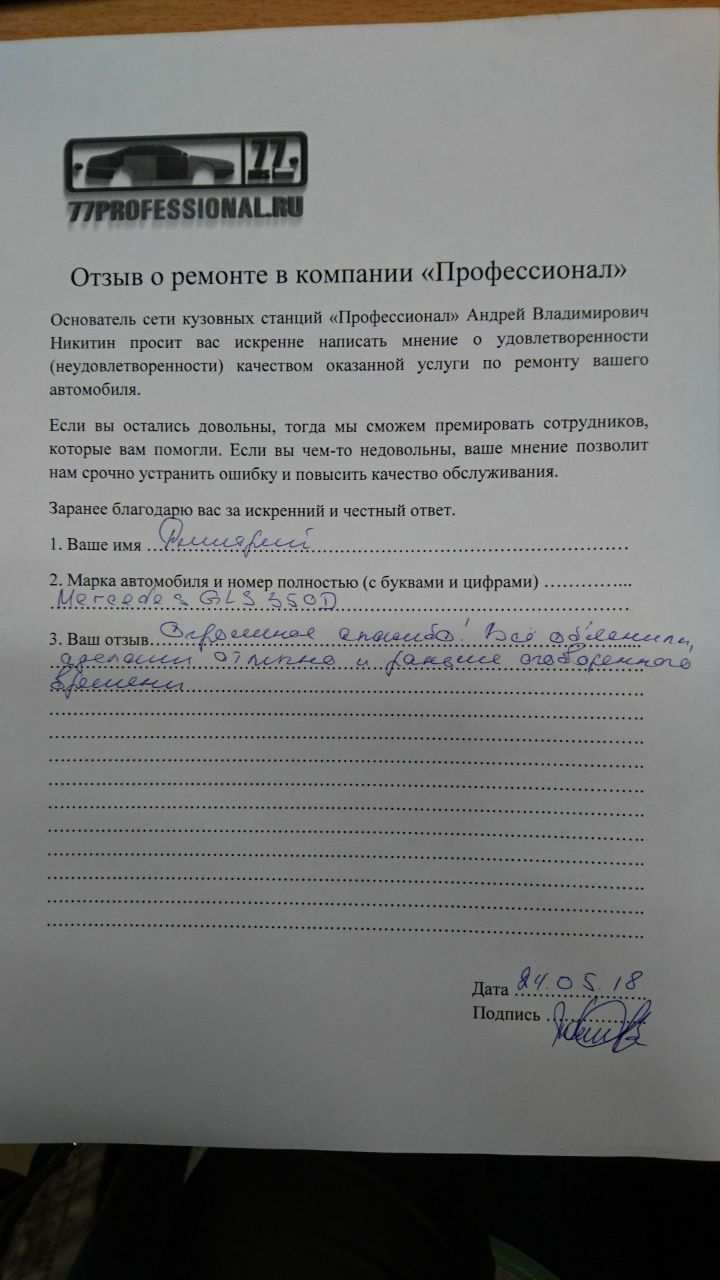 77
RUS
77PROFESSIONAL.RU
Отзыв о ремонте в компании «Профессионал»
Основатель сети кузовных станций «Профессионал» Андрей Владимирович
Никитин просит вас искренне написать мнение о удовлетворенности
(неудовлетворенности) качеством оказанной услуги по ремонту вашего
автомобиля.
Если вы остались довольны, тогда мы сможем премировать сотрудников,
которые вам помогли. Если вы чем-то недовольны, ваше мнение позволит
нам срочно устранить ошибку и повысить качество обслуживания.
Заранее благодарю вас за искренний и честный ответ.
1. Ваше имя Дмитрий
2. Марка автомобиля и номер полностью (с буквами и цифрами)
Mercedes GLS 350D
3. Ваш отзыв Огромное спасибо! Всё объяснили,
сделали отлично и раньше оговоренного
времени
Дата 24.05.18
Подпись